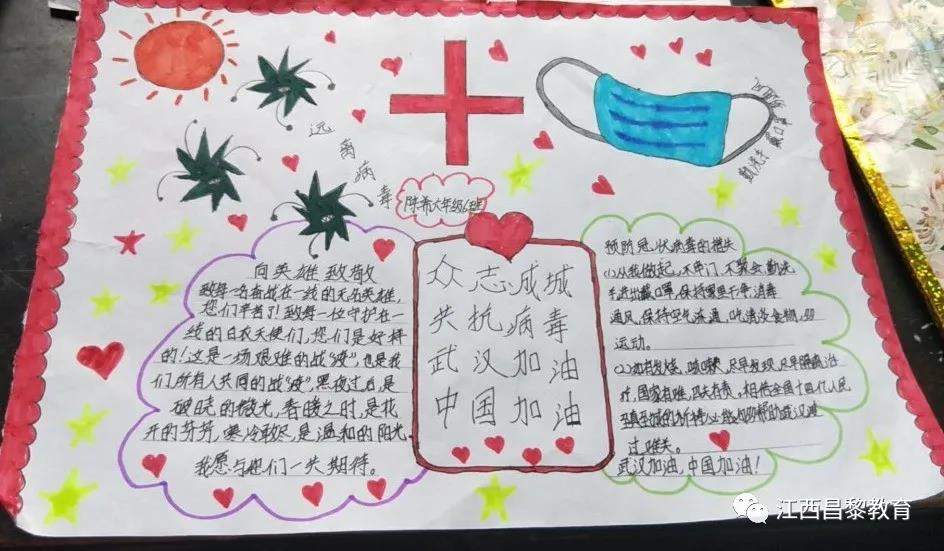 远离病毒
勤洗手 戴口罩
陈希六年级6班
向英雄致敬
致每一名奋战在一线的无名英雄,
您们辛苦了!致每一位守护在一
线的白衣天使们,您们是好样
的!这是一场艰难的战“疫”,也是我
们所有人共同的战“疫”,黑夜过后是
破晓的微光,春暖之时,是花
开的芬芳,寒冷散尽,是温和的阳光
我愿与他们一失期待。
众志成城
共抗病毒
武汉加油
中国加油
预防冠状病毒的措失
(1)从我做起,不串门,不聚会,勤洗
手进出戴口罩,保持家里干净,消毒
通风,保持空气流通,吃清淡食物,
运动。
(2)如有发烧,咳嗽,尽早发现,尽早隔离治
疗,国家有难,匹夫有责,相信全国十四亿人民
帮助武汉渡
过难关。
武汉加油,中国加油!
江西昌黎教育